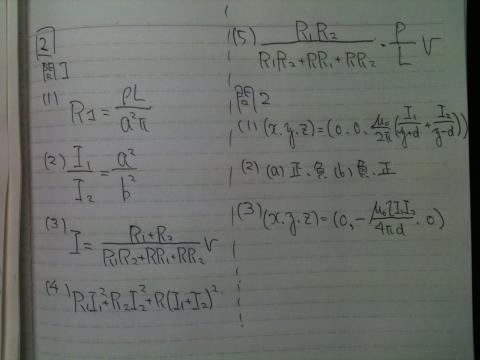 2
問1
(1) R1 = ρL / a²π
(2) I₁ / I₂ = a² / b²
(3) I = (R₁+R₂) / (R₁R₂+RR₁+RR₂) V
(4) R₁I₁²+R₂I₂²+R(I₁+I₂)²
(5) R₁R₂ / (R₁R₂+RR₁+RR₂) · P/L V
問2
(1) (x.y.z)=(0.0. μ₀/2π (I₁/(y+d) + I₂/(y-d)))
(2) (a) 正、負 (b) 負、正
(3) (x.y.z)=(0, -μ₀lI₁I₂/4πd . 0)